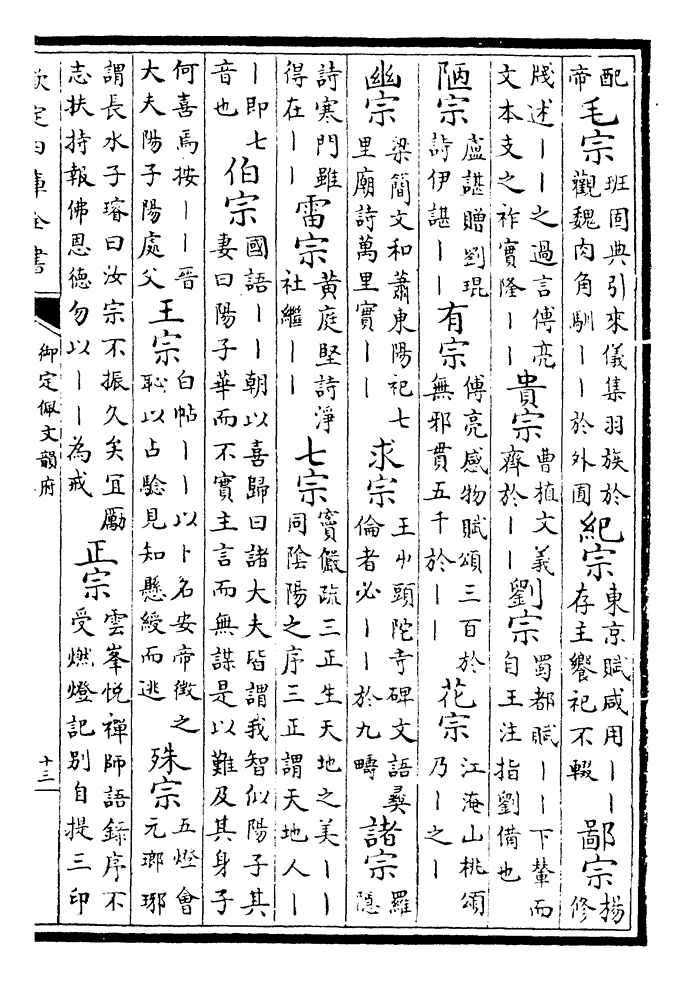 配帝 毛宗 班固典引來儀集羽族於觀魏肉角馴丨丨於外囿 紀宗 東京賦咸用丨丨存主饗祀不輟 鄙宗 楊修
牋述丨丨之過言傅亮文本支之祚實隆丨丨 貴宗 曹植文義齊於丨丨 劉宗 蜀都賦丨丨下輦而自王注指劉備也
陋宗 盧諶贈劉琨詩伊諶丨丨 有宗 傅亮感物賦頌三百於無邪貫五千於丨丨 花宗 江淹山桃頌乃丨之丨
幽宗 梁簡文和蕭東陽祀七里廟詩萬里實丨丨 求宗 王屮頭陀寺碑文語彝倫者必丨丨於九疇 諸宗 羅隱
詩寒門雖得在丨丨 雷宗 黄庭堅詩淨社繼丨丨 七宗 竇儼疏三正生天地之美丨丨同陰陽之序三正謂天地人丨
丨即七音也 伯宗 國語丨丨朝以喜歸曰諸大夫皆謂我智似陽子其妻曰陽子華而不實主言而無謀是以難及其身子
何喜焉按丨丨晉大夫陽子陽處父 王宗 白帖丨丨以卜名安帝徵之恥以占驗見知懸綬而逃 殊宗 五燈會元瑯琊
謂長水子璿曰汝宗不振久矣宜勵志扶持報佛恩德勿以丨丨為戒 正宗 雲峯悅禪師語錄序不受燃燈記别自提三印
欽定四庫全書
御定佩文韻府
十三